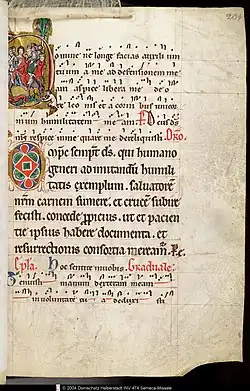 omine ne longe facias auxilium
tuum a me ad defensionem me
am aspice libera me de o
re leonis et a cornibus unicor
nium humilitatem meam. Deus ds
ms respice in me quare me dereliquisti. Oro.
Omps sempit ds. qui humano
generi ad imitandum humili
tatis exemplum. saluatorem
nrm carnem sumere. et cruce subire
fecisti. concede ppicius. ut et pacien
tie ipsius habere documenta. et
resurrectionis consortia mereamur. P.
Epla. Hoc sentite in uobis. Graduale:
Tenuisti manum dexteram meam
in uoluntate tu a deduxi sti
© 2004 Domschatz Halberstadt INV 474 Semeca-Missale